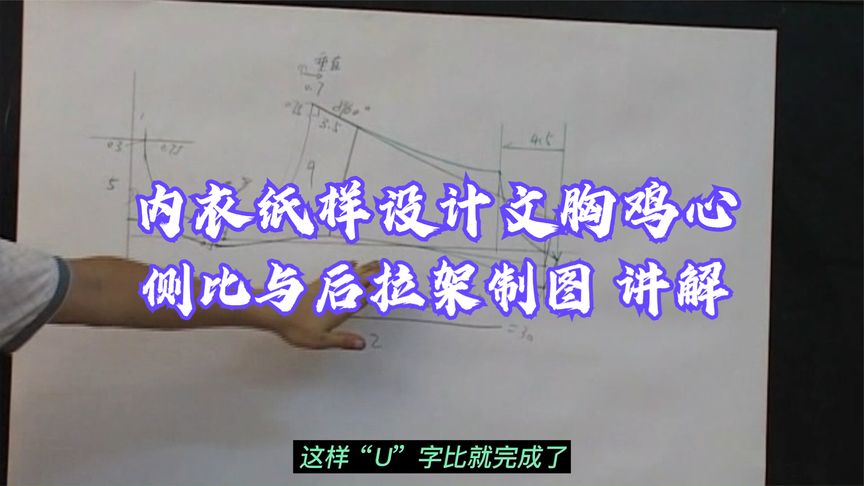 垂直
0.7
0.75
3.5
4.5
1
0.3
0.75
9
5
内衣纸样设计文胸鸡心
侧比与后拉架制图 讲解
2
这样“U”字比就完成了